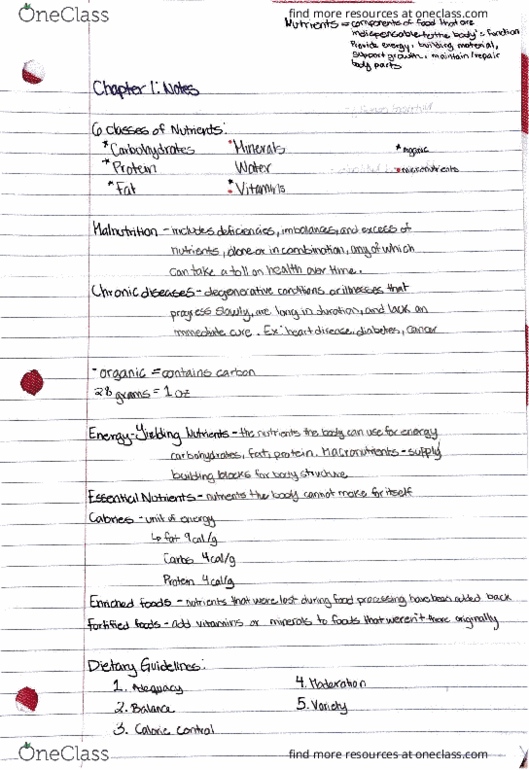 OneClass
find more resources at oneclass.com
Nutrients = components of food that are
indispensable to the body's function
Provide energy, building material,
support growth, maintain/repair
body parts
Chapter 1: Notes
6 Classes of Nutrients:
*Carbohydrates •Minerals *organic
*Protein Water •micronutrients
*Fat *•Vitamins
Malnutrition - includes deficiencies, imbalances, and excess of
nutrients, alone or in combination, any of which
can take a toll on health over time.
Chronic diseases - degenerative conditions or illnesses that
progress slowly, are long in duration, and lack an
immediate cure. Ex: heart disease, diabetes, cancer
-organic = contains carbon
28 grams = 1 oz
Energy-Yielding Nutrients - the nutrients the body can use for energy
carbohydrates, fat, protein. Macronutrients - supply
building blocks for body structure
Essential Nutrients - nutrients the body cannot make for itself
Calories - unit of energy
↳ fat 9cal/g
Carbs 4cal/g
Protein 4cal/g
Enriched foods - nutrients that were lost during food processing have been added back
Fortified foods - add vitamins or minerals to foods that weren't there originally
Dietary Guidelines:
1. Adequacy 4. Moderation
2. Balance 5. Variety
3. Calorie control
OneClass
find more resources at oneclass.com